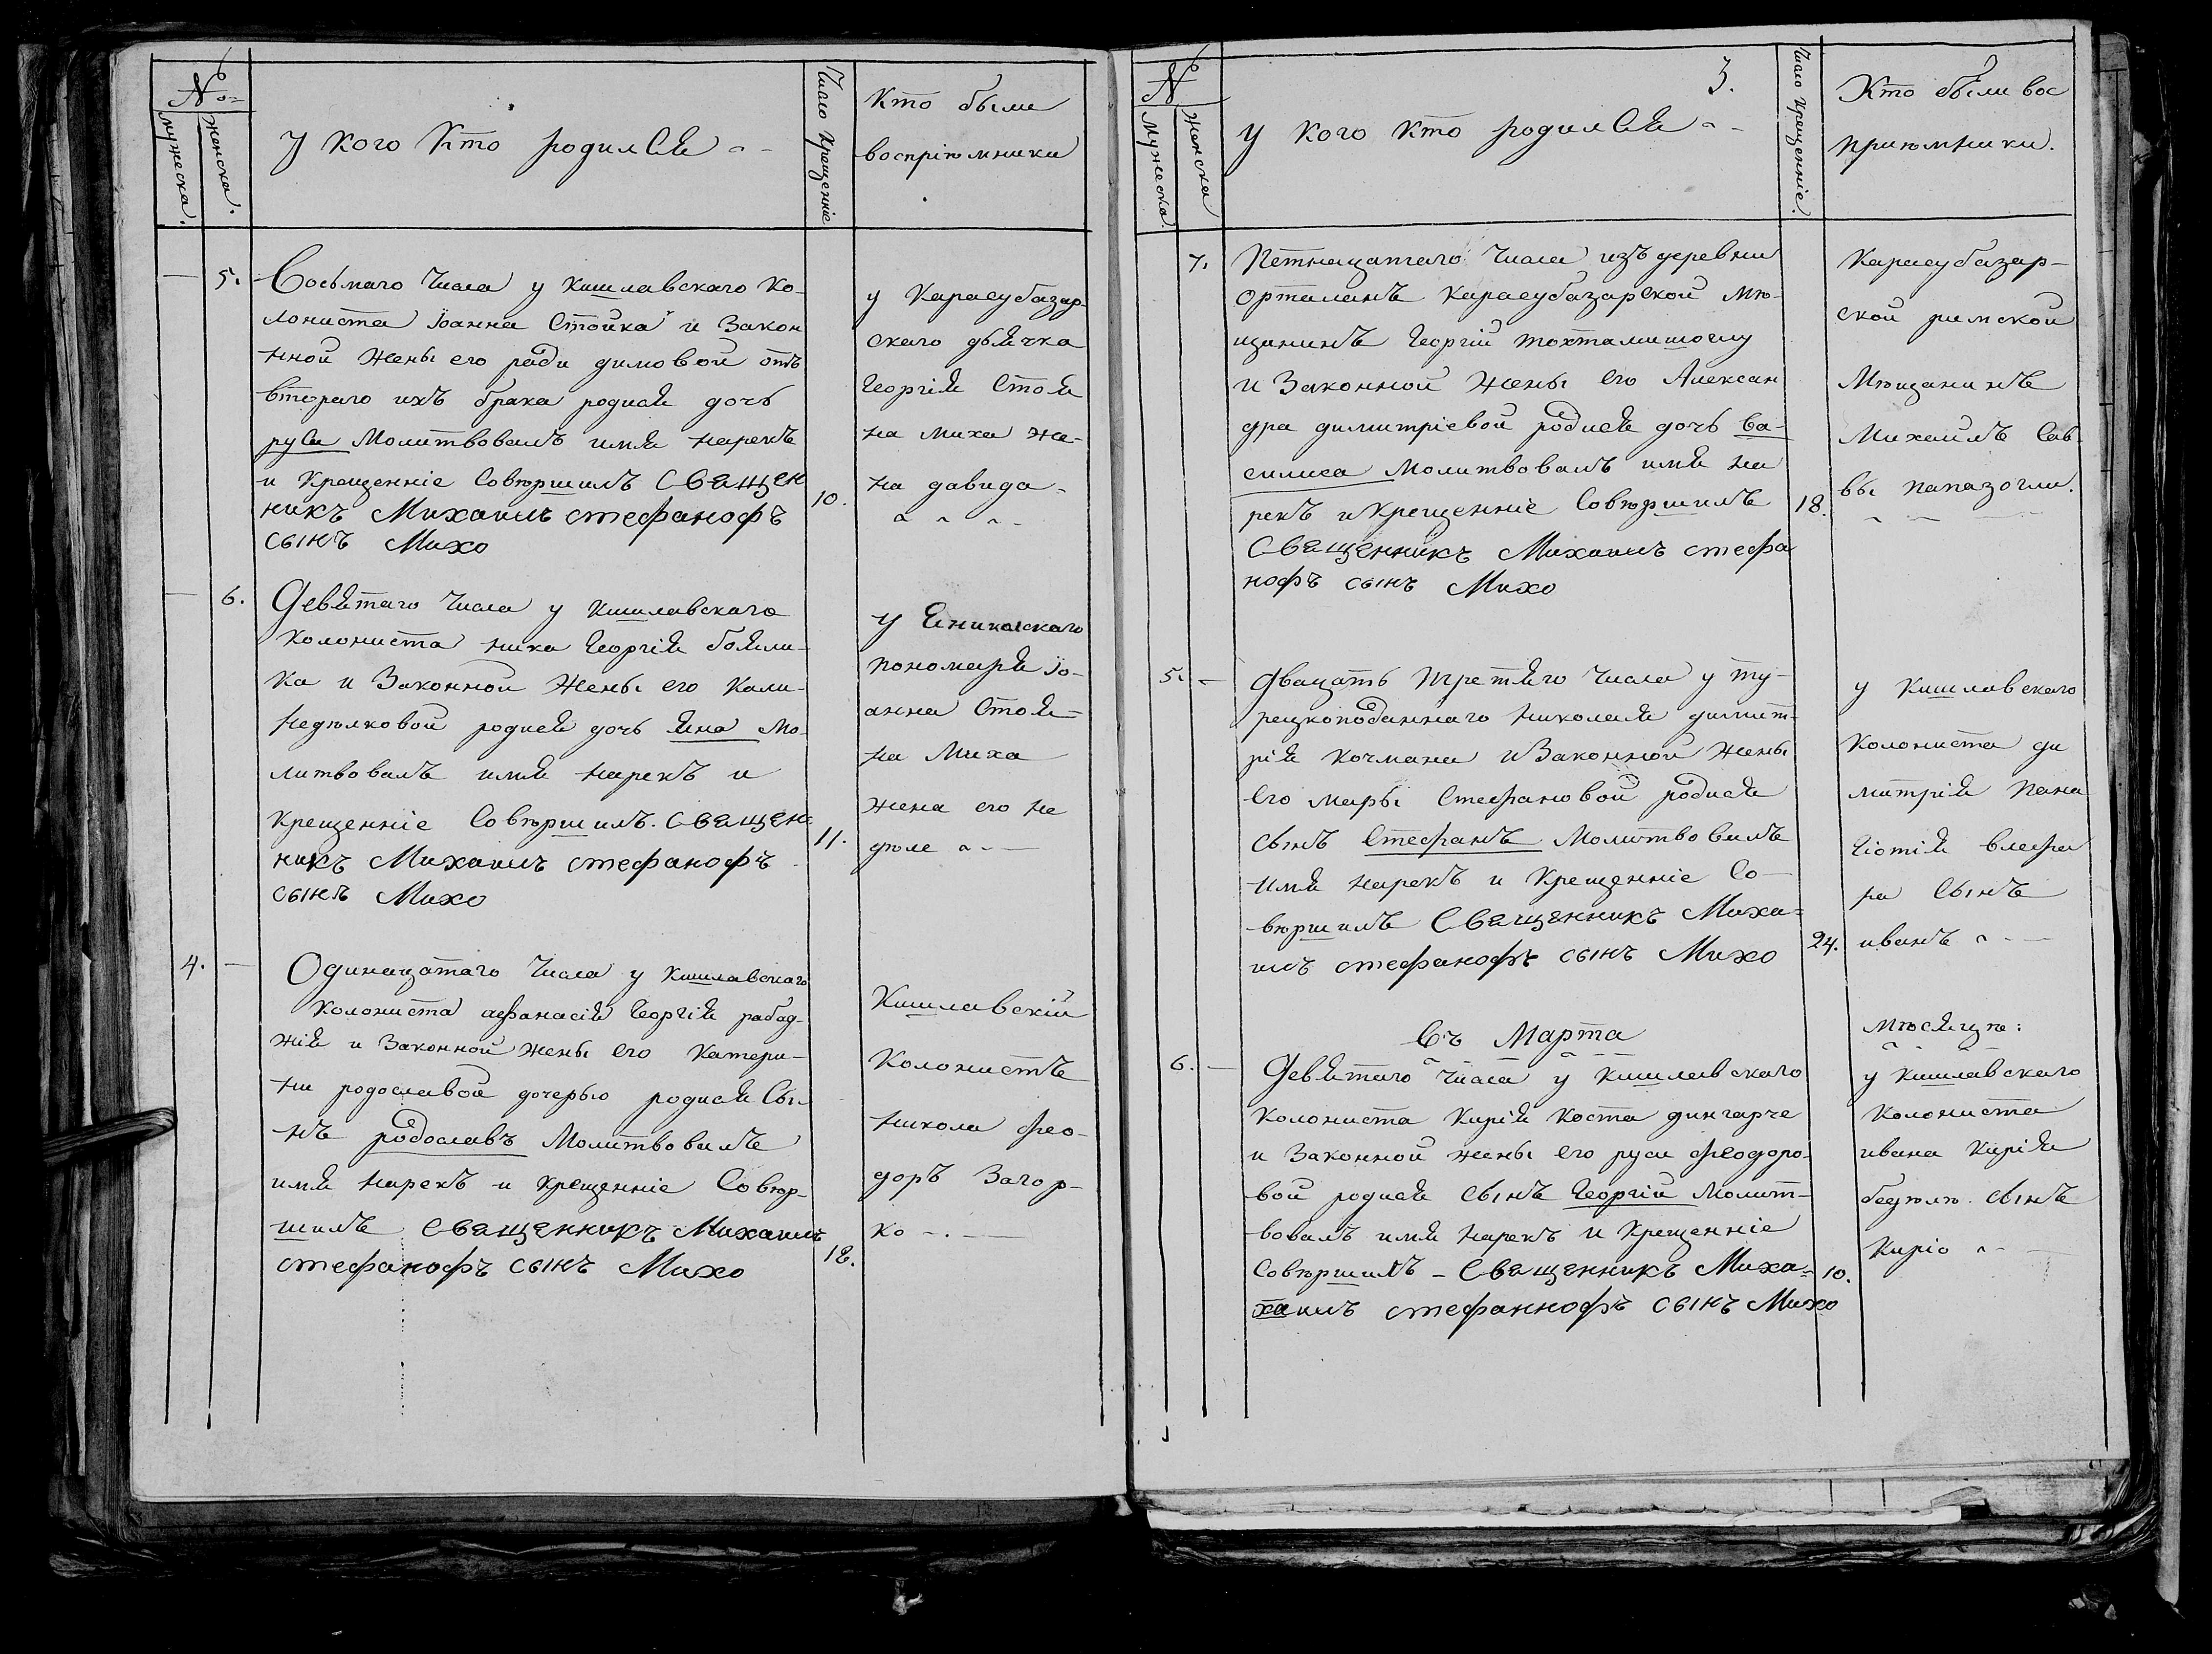 №
мужеска.
женска.
У кого Кто родилСя
Число Крещенніе
Кто были
воспріѣмники
5.
Восьмаго Числа у Кишлавскаго Ко-
лониста Іоанна Стойка и Закон
нной Жены его ради димовой отъ
втораго ихъ брака родися дочь
руса Молитвовалъ имя нарекъ
и Крещенніе Совѣршилъ Священ
никъ Михаилъ стефанофъ
сынъ Михо
10.
у Карасубазар-
скаго дьячка
Георгія Стоя
на миха же-
на давида
6.
Девятаго Числа у Кишлавскаго
Колониста ника Георгія бояли-
ка и Законной Жены его Кали-
недѣлковой родися дочь яна Мо-
литвовалъ имя нарекъ и
Крещенніе Совѣршилъ. Священ
никъ Михаилъ стефанофъ
сынъ Михо
11.
у Еникалскаго
пономаря Іо-
анна Стоя-
на Миха
жена его не
дѣле
4.
Одинацатаго Числа у Кишлавскаго
Колониста афанасія Георгія рабад-
жія и Законной Жены его Катери-
ни родославой дочерью родися Сы-
нъ родославъ Молитвовалъ
имя нарекъ и Крещенніе Совѣр-
шилъ Священникъ Михаилъ
стефанофъ сынъ Михо
18.
Кишлавскій
Колонистъ
никола фео-
доръ Загор-
ко
№
Мужеска
Женска
3.
у кого кто родилСя
Число Крещенніе.
Кто были вос
приѣмники.
7.
Петнацатаго Числа изъ деревни
Орталанъ Карасубазарской Мѣ-
щанинъ Георгій тохталишоглу
и Законной Жены его Алексан
дра димитріевой родися дочь ва-
силиса Молитвовалъ имя на
рекъ и Крещенніе Совѣршилъ
Священникъ Михаилъ стефа
нофъ сынъ Михо
18.
Карасубазар-
ской римской
Мѣщанинъ
Михаилъ Сав-
вы папазогли.
5.
Двацать третяго Числа у ту-
рецкоподаннаго николая димит-
рія Кочмана и Законной Жены
его мары Стефановой родися
сынъ Стефанъ Молитвовалъ
имя нарекъ и Крещенніе Со-
вѣршилъ Священникъ Миха-
илъ стефанофъ сынъ Михо
24.
у Кишлавскаго
Колониста ди
митрія пана
гіотія влефе
ра Сынъ
иванъ
Въ Марта
Мѣсяцѣ:
6.
Девятаго Числа у Кишлавскаго
Колониста Кирія Коста дингарче
и Законной жены его руси феодоро-
вой родися Сынъ Георгій Молит-
вовалъ имя нарекъ и Крещенніе
Совѣршилъ – Священникъ Миха-
хаилъ стефаннофъ сынъ Михо
10.
у Кишлавскаго
Колониста
ивана Кирія
бедѣлѣ. Сынъ
Киріо